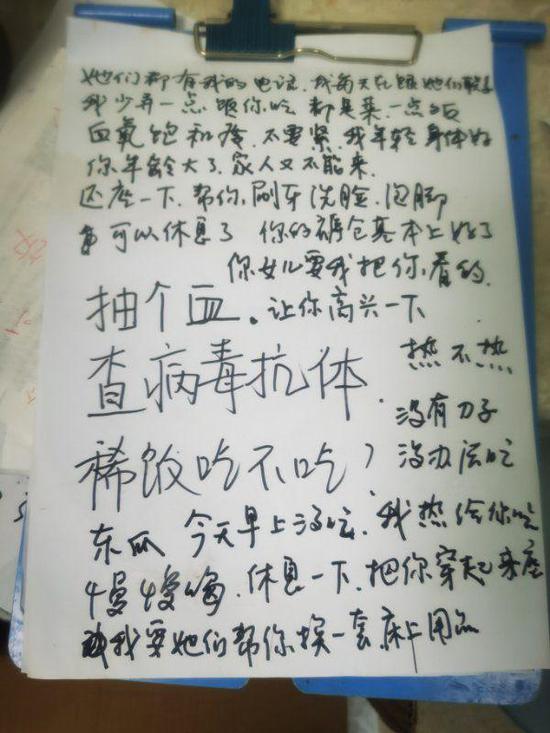 她们都有我的电话，我每天在跟她们联系
我少弄一点饭你吃 都是菜，一点点饭
血氧饱和度，不要紧，我年轻身体好
你年龄大了，家人又不能来，
还座一下，帮你刷牙洗脸，泡脚
可以休息了 你的褥仓基本上好了
你女儿要我把你看的，
抽个血。让你高兴一下
查病毒抗体，热不热
没有刀子
稀饭吃不吃？没办法吃
东瓜 今天早上没吃，我热给你吃
慢慢喝，休息一下，把你穿起来座
我要她们帮你换一套床上用品